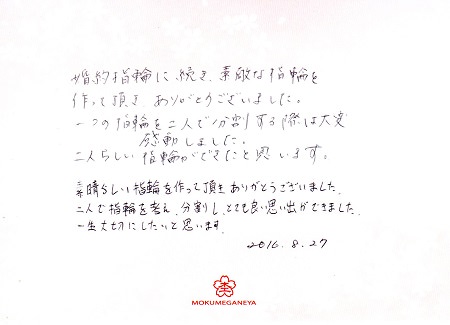 婚約指輪に続き、素敵な指輪を
作って頂き、ありがとうございました。
一つの指輪を二人で分割する際は大変
感動しました。
二人らしい指輪ができたと思います。
素晴らしい指輪を作って頂きありがとうございました。
二人で指輪を考え、分割し、とても良い思い出ができました。
一生大切にしたいと思います。
2016.8.27
MOKUMEGANEYA